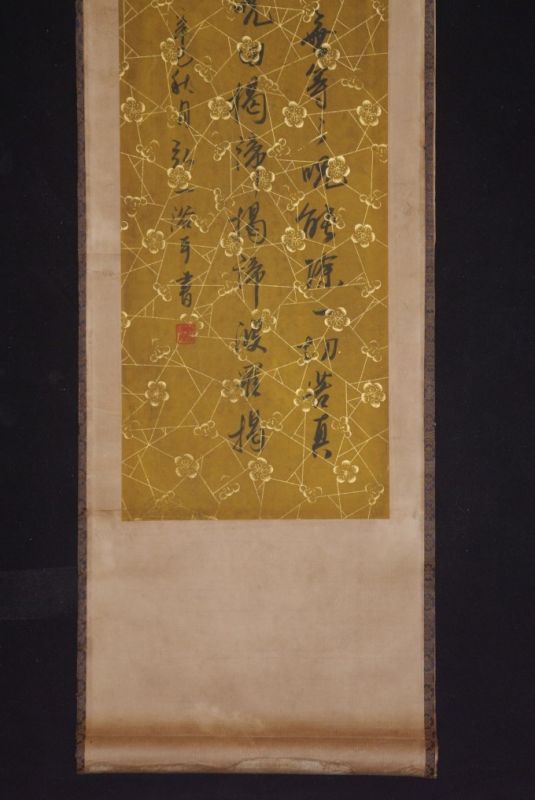 無等々呪能除一切苦真
呪曰揭諦揭諦波羅揭
秋月 書